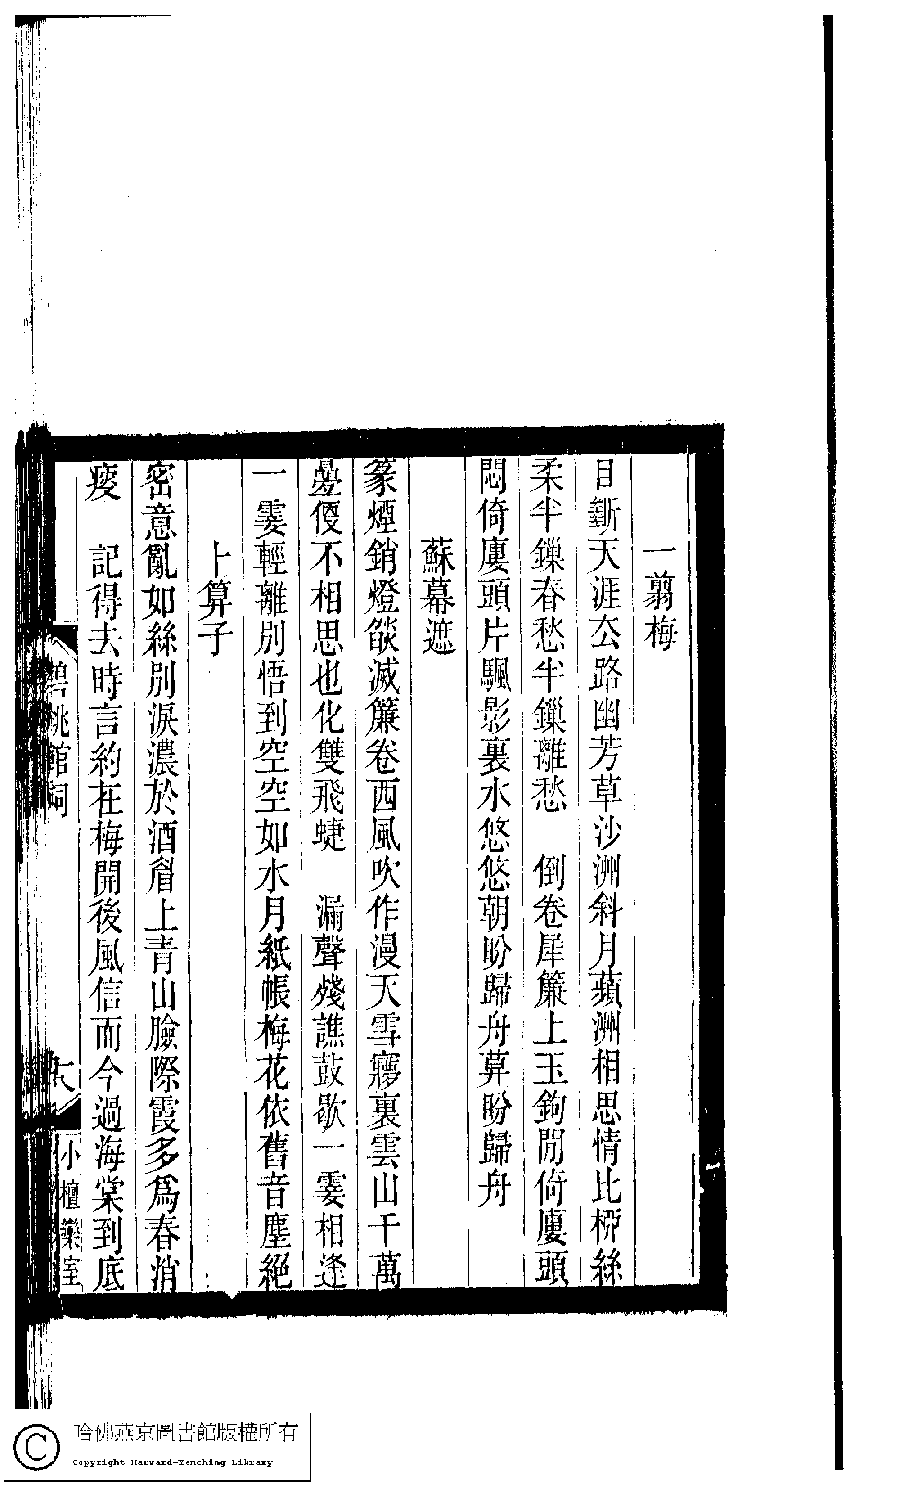 一翦梅
目斷天涯厺路幽芳草沙洲斜月蘋洲相思情比桺絲
柔半鏁春愁半鏁離愁　倒卷犀簾上玉鉤閒倚廔頭
悶倚廔頭片颿影裏水悠悠朝盼歸舟莫盼歸舟
蘇幕遮
篆煙銷燈燄滅簾卷西風吹作漫天雪寱裏雲山千萬
曡傻不相思也化雙飛蜨　漏聲殘譙鼓歇一霎相逢
一霎輕離別悟到空空如水月紙帳梅花依舊音塵絕
卜算子
密意亂如絲別淚濃於酒眉上青山臉際霞多爲春消
瘦　記得去時言約在梅開後風信而今過海棠到底
碧桃館詞
六
小檀欒室
哈佛燕京圖書館版權所有
Copyright Harvard-Yenching Library